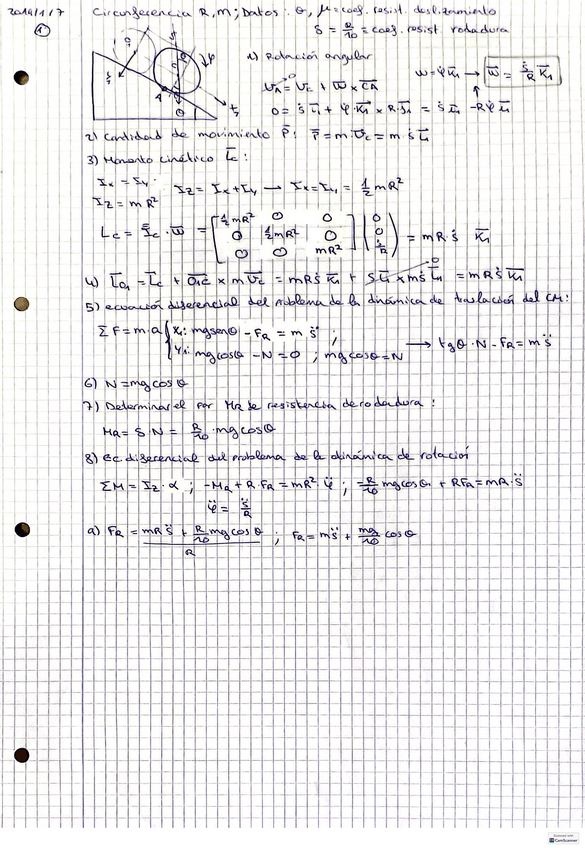 2019/1/7
①
Circunferencia R, m; Datos: θ, μ = coef. resist. deslizamiento
δ = R/10 = coef. resist rodadura
1) Rotación angular
ω = φ̇ K̄₁ → ω̄ = ṡ/R K̄₁
V̄A = V̄c + ω̄ × C̄Ā
0 = ṡ ī₁ + φ̇ K̄₁ × R·J̄₁ = ṡ ī₁ - Rφ̇ ī₁
2) Cantidad de movimiento P̄: P̄ = m·V̄c = m·ṡ ī₁
3) Momento cinético L̄c:
Ix = Iy
Iz = mR²
Iz = Ix + Iy → Ix = Iy = 1/2 mR²
Lc = Īc · ω̄ = [1/2 mR² 0 0; 0 1/2 mR² 0; 0 0 mR²] (0; 0; ṡ/R) = mR·ṡ K̄₁
4) L̄O₁ = L̄c + Ō₁C̄ × mV̄c = mRṡ K̄₁ + s ī₁ × mṡ ī₁ = mRṡ K̄₁
5) ecuación diferencial del problema de la dinámica de traslación del CM:
ΣF = m·a { X₁: mg senθ - FR = m s̈ ;
Y₁: mg cosθ - N = 0 ; mg cosθ = N → tgθ · N - FR = m s̈
6) N = mg cosθ
7) Determinar el par MR de resistencia de rodadura:
MR = δ N = R/10 · mg cosθ
8) Ec. diferencial del problema de la dinámica de rotación
ΣM = Iz · α ; -MR + R FR = mR² · φ̈ ; -R/10 mg cosθ + R FR = mR · s̈
φ̈ = s̈/R
a) FR = (mR s̈ + R/10 mg cosθ)/R ; FR = m s̈ + mg/10 cosθ
Scanned with
CamScanner